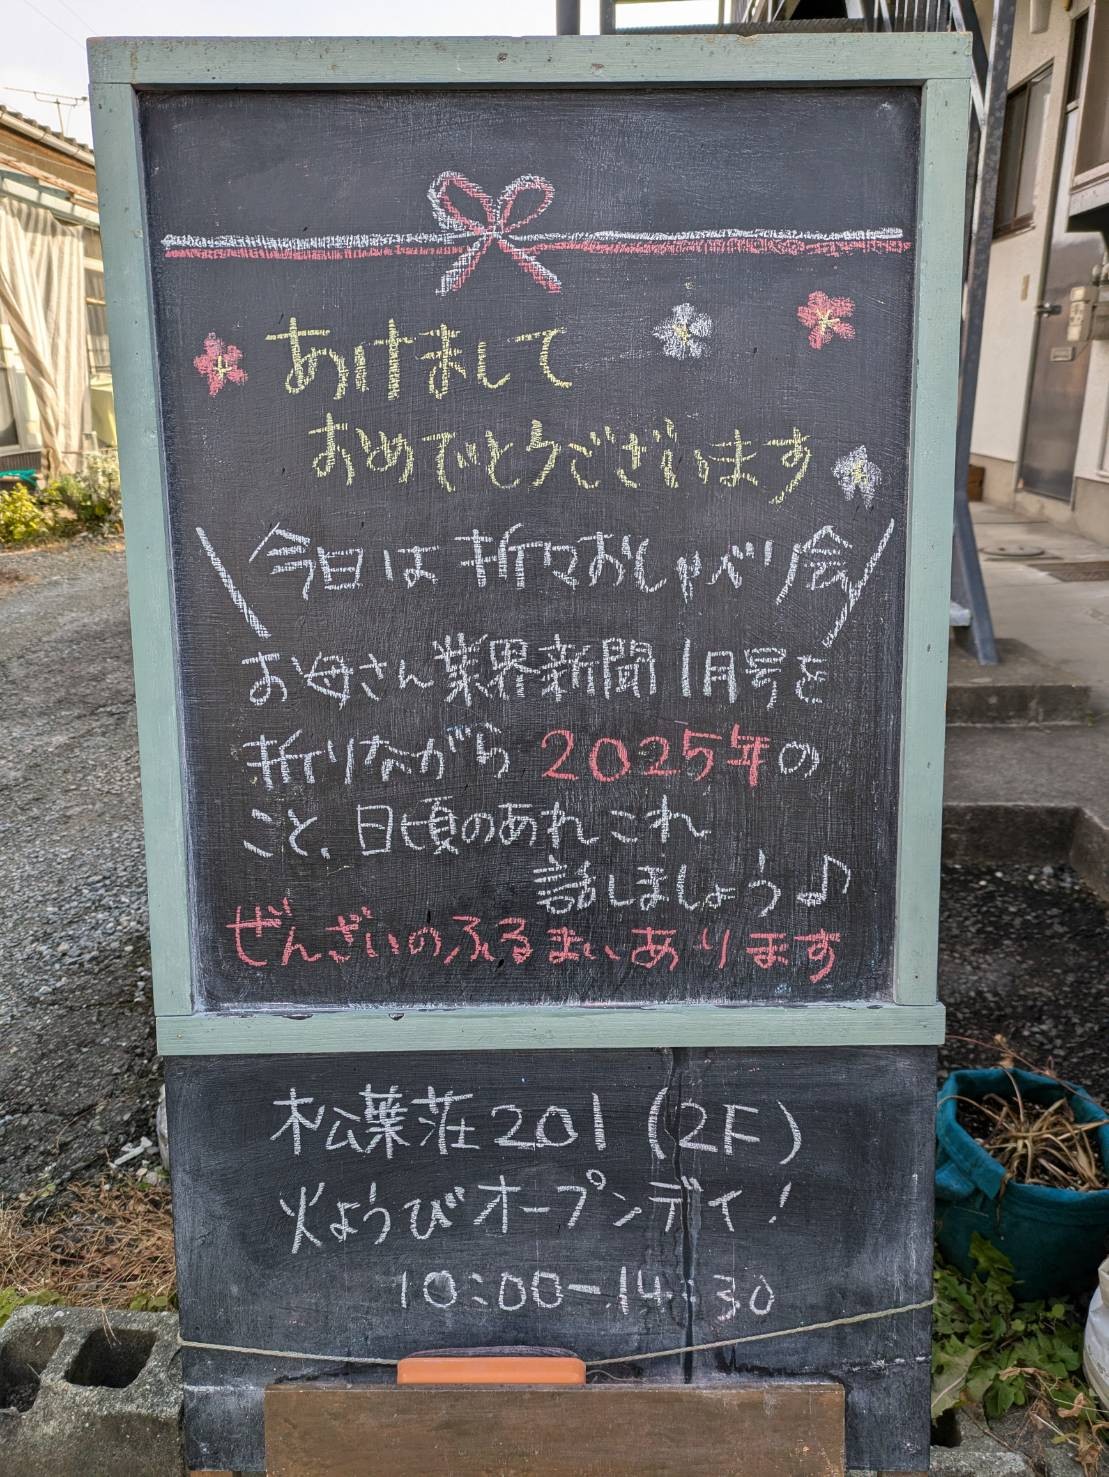 あけまして
おめでとうございます
\ 今日は折々おしゃべり会 /
お母さん業界新聞1月号を
折りながら2025年の
こと、日頃のあれこれ
話しましょう♪
ぜんざいのふるまいあります
松葉荘201(2F)
火ようびオープンデイ!
10:00-14:30